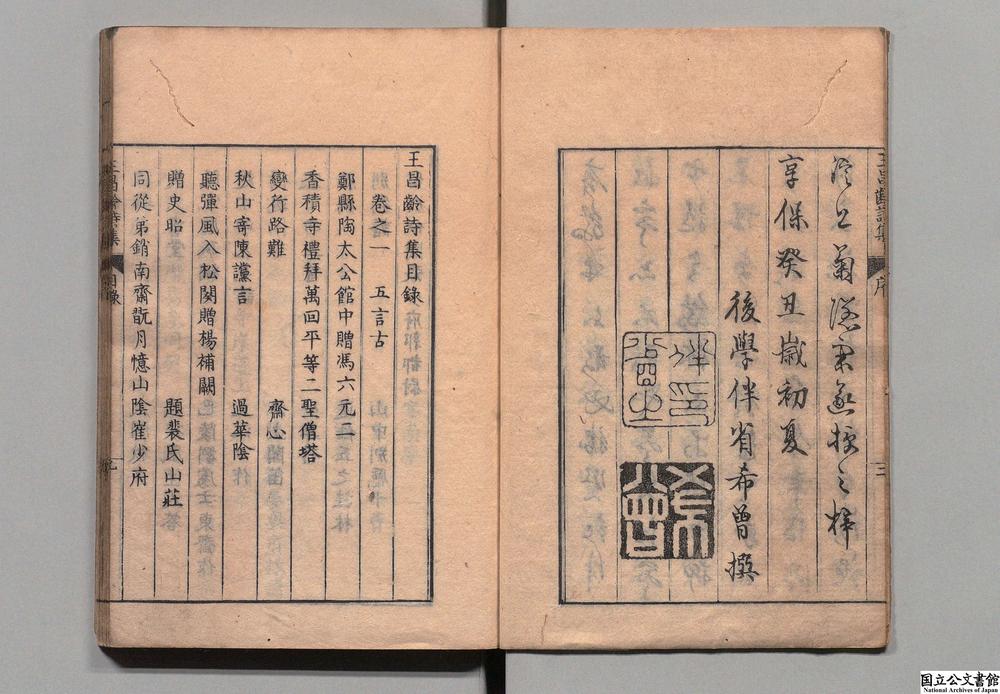 王昌齡詩集 序 三
上菊授之梓
享保癸丑歲初夏
後學伴省希曾撰
希曾
王昌齡詩集目錄
卷之一 五言古
鄭縣陶太公館中贈馮六元二
香積寺禮拜萬回平等二聖僧塔
變行路難 齋心
秋山寄陳讜言 過華陰
聽彈風入松闋贈楊補闕
贈史昭 題裴氏山莊
同從弟銷南齋翫月憶山陰崔少府
王昌齡詩集 目錄
国立公文書館
National Archives of Japan